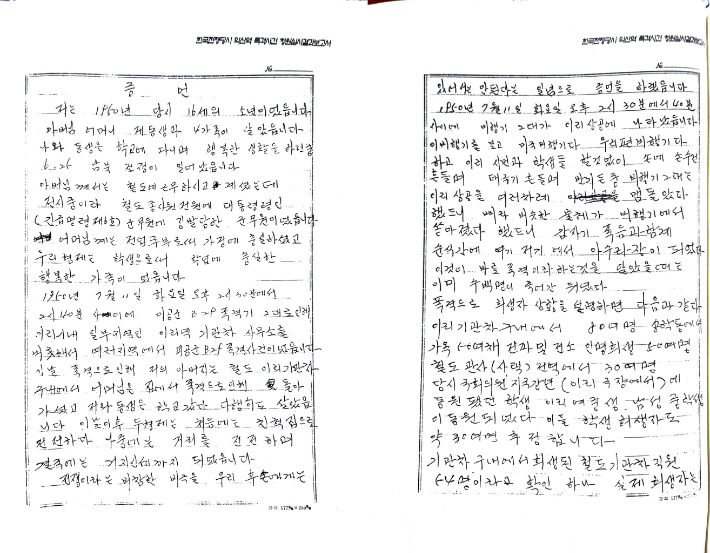 한국전쟁당시 익산역 폭격사건 진실실시결과보고서
№
증 언
저는 1950년 당시 16세의 소년이었읍니다
아버님 어머니 제동생과 4가족이 살았읍니다
나와 동생은 학교에 다니며 행복한 생활을 하던중
6.25 남북 전쟁이 일어났읍니다
아버님께서는 철도에 근무하시고 계셨는데
전시중이라 철도 종사원 전원에 대통령령인
(긴급명령제6호) 군무원에 준발당한 군무원이었읍니다
어머님께는 전업주부로써 가정에 충실하셨고
우리형제는 학생으로써 학업에 충실한
행복한 가족이 였읍니다
1950년 7월 11일 화요일 오후 2시 30분에서
2시 40분 사이에 미공군 B29 폭격기 2대로 인해
이리시내 일부지역인 이리역 기관차 사무소를
비롯해서 여러지역에서 미공군 B29 폭격사건이 있었읍니다
폭격으로 인해 저의 아버지는 철도 이리기관차
구내에서 어머님은 집에서 폭격으로 인해 돌아
가셨고 저와 동생은 학교 갔다 다행히도 살았읍
니다 이 후 두형제는 처음에는 친척집으로
전전하다 나중에는 거리를 전전하며
결국에는 거지신세까지 되었읍니다
전쟁이라는 비참한 비극을 우리 후손에게는
규격 177㎜×250㎜
한국전쟁당시 익산역 폭격사건 진실실시결과보고서
№
있어서는 안된다는 일념으로 증언을 하겠읍니다
1950년 7월 11일 화요일 오후 2시 30분에서 40분
사이에 비행기 2대가 이리상공에 나타났읍니다
이비행기를 보고 미국비행기다 우리편 비행기다
하고 이리 시민과 학생들 할것없이 손에 손수건
흔들며 태극기 흔들며 반기는중 비행기 2대는
이리 상공을 여러차례 맴돌았다
했드니 삐라 비슷한 물체가 비행기에서
쏟아졌다 했드니 갑자기 폭음과 함께
순식간에 여기 저기에서 아수라장이 되었다
이것이 바로 폭격이라하는것을 알았을때는
이미 수백명이 죽어간 뒤였다
폭격으로 희생자 상황을 설명하면 다음과 같다
이리기관차 구내에서 80여명 송학동에서
가옥 50여채 전파 및 전소 인명희생 50여명
철도 관사 (사택) 전역에서 30여명
당시 국회의원 지국간편 (이리 극장에서)에
동원됐던 학생 이리여중생 남성중학생
이 동원되었다 이들 학생 희생자도
약 30여명 추정 합니다
기관차 구내에서 희생된 철도기관차직원
54명이라고 확인 하나 실제희생자는
규격 177㎜×250㎜